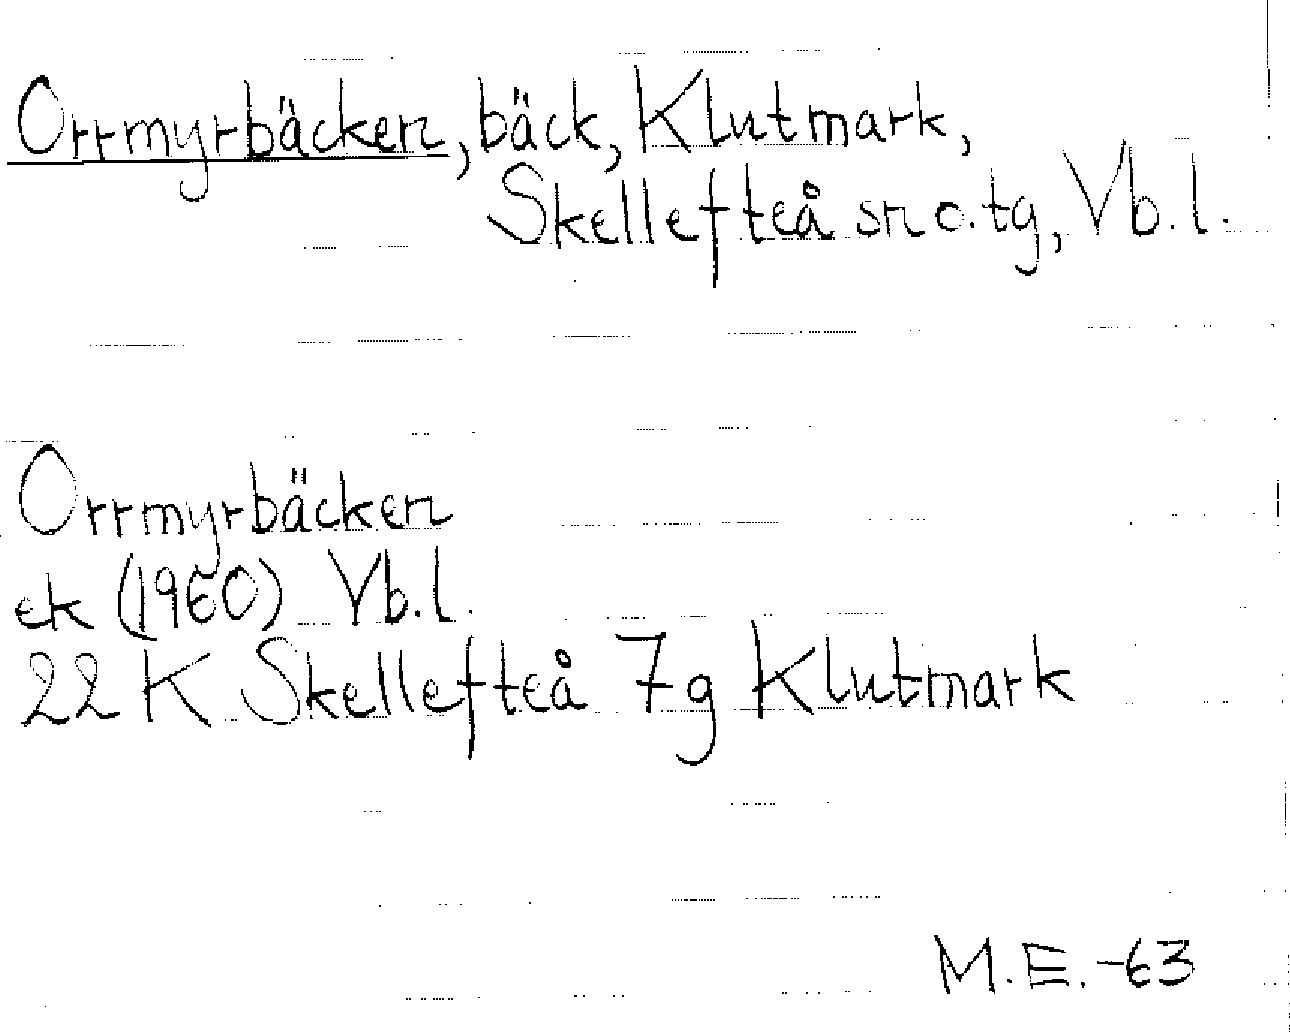 Orrmyrbäcken, bäck, Klutmark,
Skellefteå sn o. tg, Vb. l.
Orrmyrbäcken
ek (1960) Vb. l.
22 K Skellefteå 7g Klutmark
M.E.-63